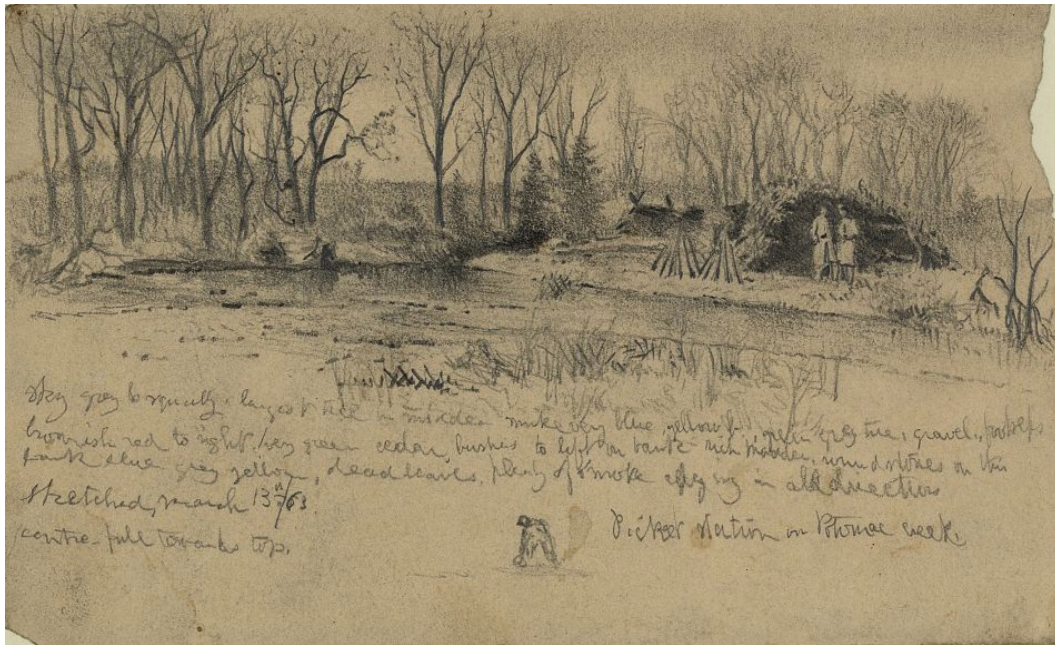 Sky grey & squally. largest tree in middle make very blue yellow grey tree, gravel,
brownish red to right. very green cedar, bushes to left on bank rich madder, round stones on this
bank blue grey yellow, dead leaves, plenty of smoke edging in all directions
Sketched, march 13th/63.
centre- full towards top.
Picket station on Potomac creek.